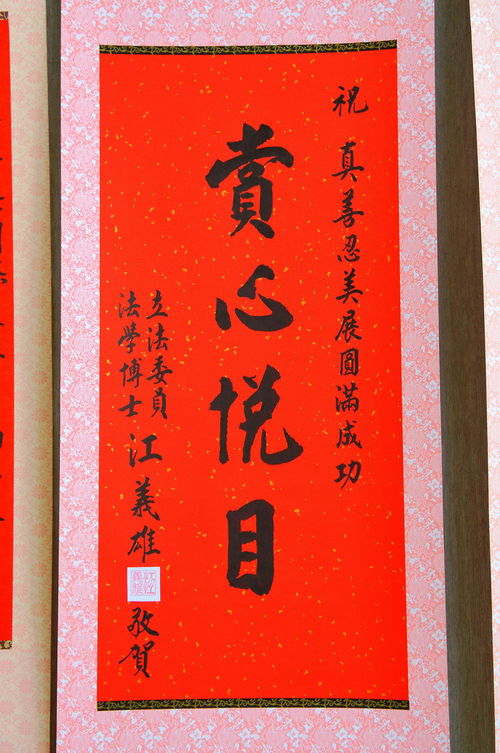 祝 真善忍美展圓滿成功
賞心悅目
立法委員
法學博士
江義雄 敬賀